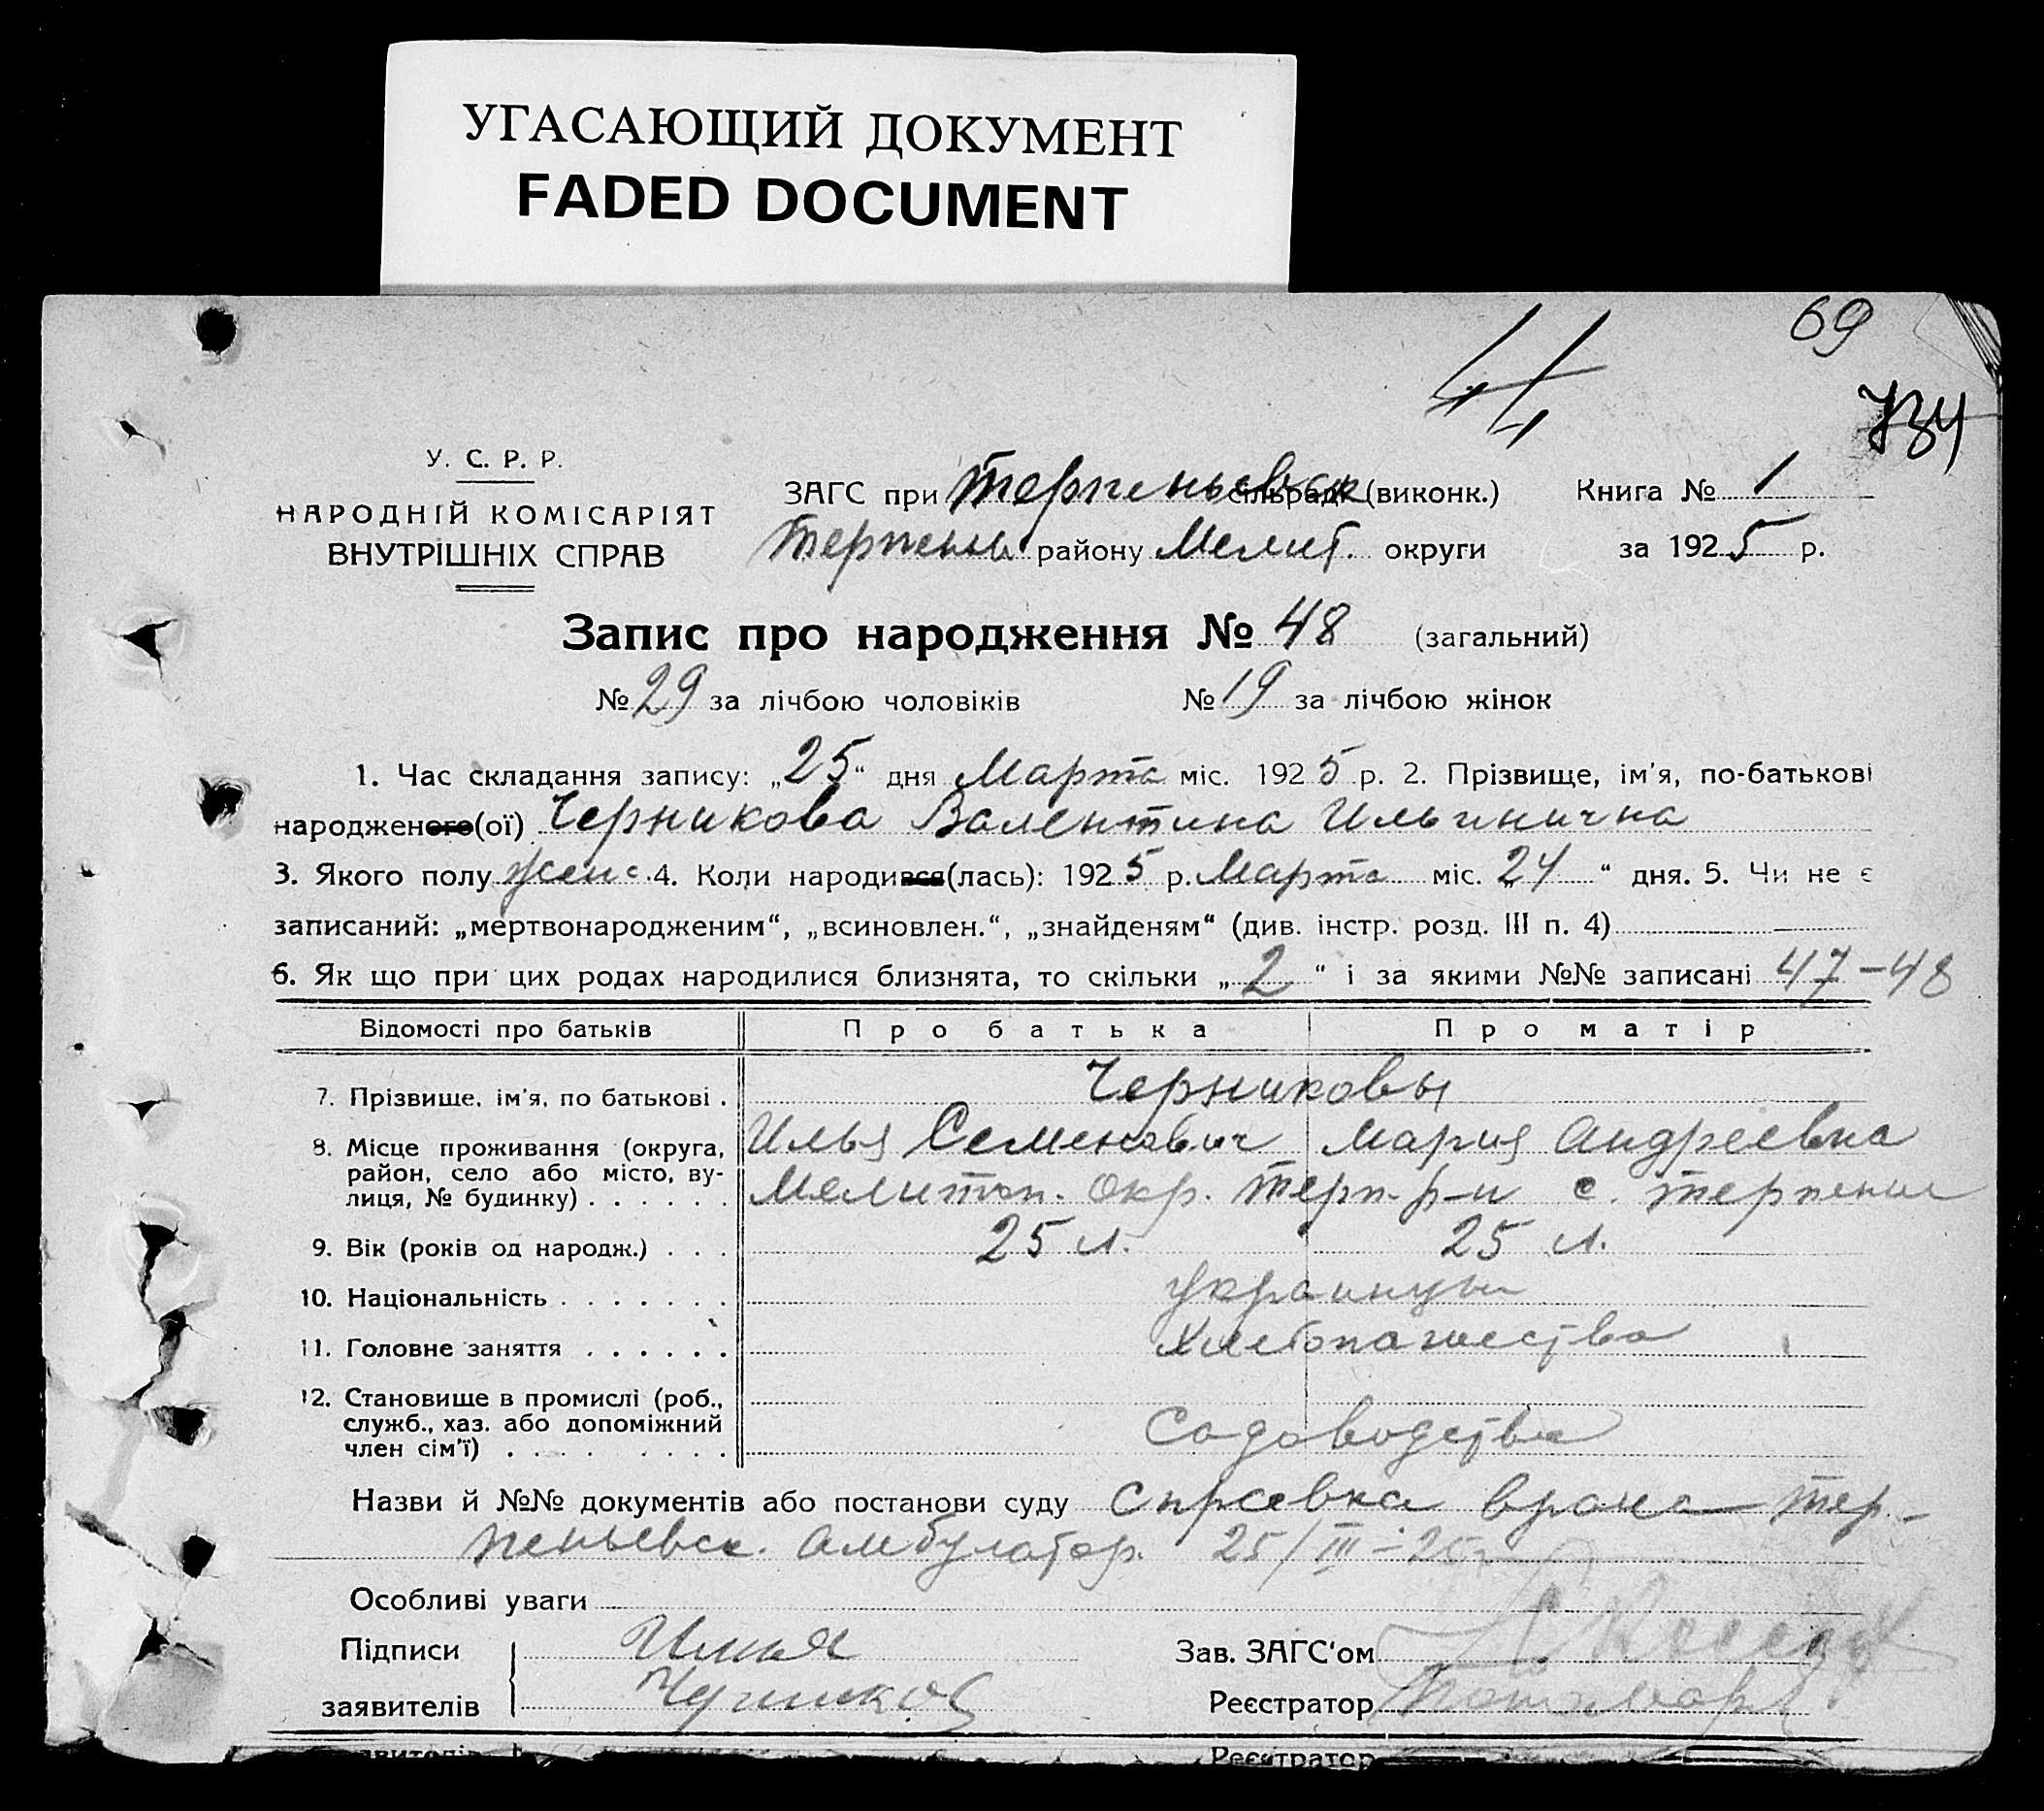 УГАСАЮЩИЙ ДОКУМЕНТ
FADED DOCUMENT
69
44
734
У. С. Р. Р.
НАРОДНІЙ КОМІСАРІЯТ
ВНУТРІШНІХ СПРАВ
ЗАГС при Терпеньевск сільраді (виконк.) Книга № 1
Терпень району Мелит. округи за 1925 р.
Запис про народження № 48 (загальний)
№ 29 за лічбою чоловіків № 19 за лічбою жінок
1. Час складання запису: „25“ дня Марта міс. 1925 р. 2. Прізвище, ім'я, по-батькові
народженого(ої) Черникова Валентина Ильинична
3. Якого полу женс 4. Коли народився(лась): 1925 р. Марта міс. „24“ дня. 5. Чи не є
записаний: „мертвонародженим“, „всиновлен.“, „знайденям“ (див. інстр. розд. III п. 4)
6. Як що при цих родах народилися близнята, то скільки „2“ і за якими №№ записані 47-48
Відомості про батьків Про батька Про матір
7. Прізвище, ім'я, по батькові . Черниковы
8. Місце проживання (округа, Илья Семенович Мария Андреевна
район, село або місто, ву-
лиця, № будинку) . . . . . . Мелитоп. окр. Терп. р-н с. Терпение
9. Вік (років од народж.) . . . 25 л. 25 л.
10. Національність . . . . . . . украинцы
11. Головне заняття . . . . . . Хлебопашества
12. Становище в промислі (роб.,
служб., хаз. або допоміжний Садоводства
член сім'ї) . . . . . . . .
Назви й №№ документів або постанови суду справка врача Тер-
пеньевск. амбулатор. 25/III-25
Особливі уваги
Підписи Илья Зав. ЗАГС'ом
заявителів Черников Реєстратор
Реєстратор